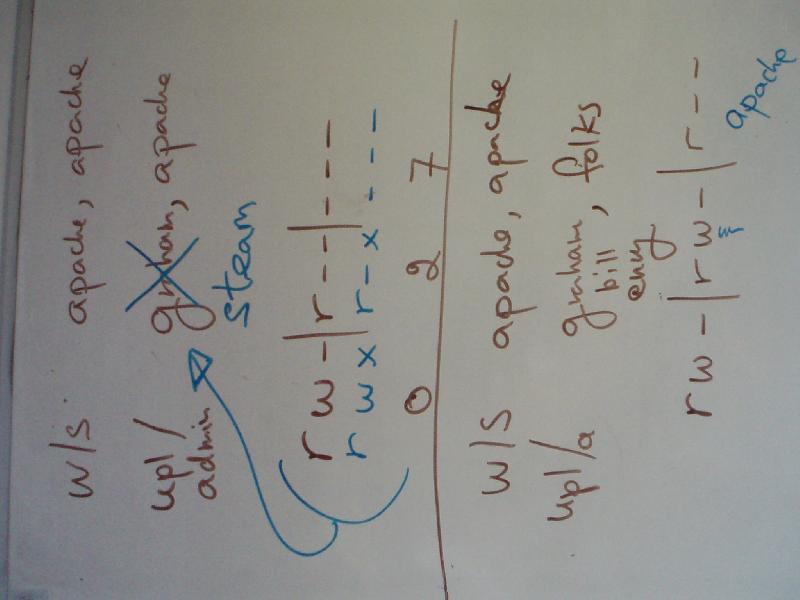 w/s apache, apache
upl/ graham, apache
admin
steam
rw-|r--|---
rwx r-x ---
0 2 7
w/s apache, apache
upl/a graham, folks
bill
rw-|rw-|r--
apache